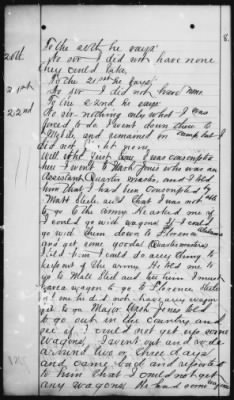 8.
20th To the 20th he says:
No sir I did not have none
they could take.
21st To the 21st he says:
No sir I did not have none.
22nd To the 22nd he says:
No sir nothing only what I was
forced to do I went down there to
and remained in camp but I
did not
Well the first time I was conscripted
then I went to Wash Jones who was an
Assistant Quarter master, and I told
him that I had been conscripted by
Matt Steele and that I was not able
to go to the army He asked me if
I could go with wagons if I could
go with them down to Florence Alabama
and get some goods (Quartermasters)
I told him I could do any thing to
keep out of the army He told me to go
up to Matt Steel and tell him I must
have a wagon to go to Florence Steele
told me he did not have any wagon
got to go Major Wash Jones told
to go out in the country and
see if I could not get up some
wagons. I went out and rode
around two or three days
and came back and reported
to him that I could not get
any wagons He had some wagons